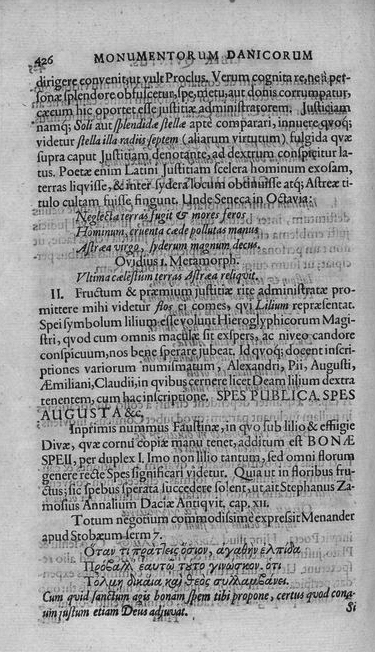 426 MONUMENTORUM DANICORUM
dirigere convenit, ut vult Proclus. Verum cognita re, ne ii per-
sonæ splendore obfuscetur, spe, metu, aut donis corrumpatur,
cæcum hic oportet esse justitiæ administratorem. Justiciam
namq; Soli aut splendidæ stellæ aptè comparari, innuere qvoq;
videtur stella illa radiis septem (aliarum virtutum) fulgida qvæ
supra caput Justitiam denotante, ad dextrum conspicitur la-
tus. Poetæ enim Latini Justitiam scelera hominum exosam,
terras liqvisse, & inter sydera locum obtinuisse atq; Astreæ ti-
tulo cultam fuisse fingunt. Unde Seneca in Octavia:
Neglecta terras fugit & mores feros
Hominum, cruenta cæde pollutas manus
Astræa virgo, syderum magnum decus.
Ovidius 1. Metamorph.
Vltima cælestium terras Astræa reliqvit.
II. Fructum & præmium justitiæ ritè administratæ pro-
mittere mihi videtur flos et comes, qvi Lilium repræsentat.
Spei symbolum lilium esse volunt Hieroglyphicorum Magi-
stri, qvod cum omnis maculæ sit expers, ac niveo candore
conspicuum, nos bene sperare jubeat. Id qvoq; docent inscri-
ptiones variorum numismatum, Alexandri, Pii, Augusti,
Æmiliani, Claudii, in qvibus cernere licet Deam lilium dextra
tenentem, cum hac inscriptione. SPES PUBLICA. SPES
AUGUSTA &c.
Inprimis nummus Faustinæ, in qvo sub lilio & effigie
Divæ, qvæ cornu copiæ manu tenet, additum est BONÆ
SPEII, per duplex I. Imo non lilio tantum, sed omni florum
genere recte Spes significari videtur. Quia ut in floribus fru-
ctus; sic spebus sperata succedere solent, ut ait Stephanus Za-
mosius Annalium Daciæ Antiqvit. cap. xii.
Totum negotium commodissimè expressit Menander
apud Stobæum serm 7.
Ὅταν τι πράττεις ὅσιον, ἀγαθὴν ἐλπίδα
Πρόβαλλ' ἑαυτῷ τοῦτο γινώσκων. ὅτι
Τόλμῃ δικαίᾳ καὶ θεὸς συλλαμβάνει.
Cum quid sanctum agis bonam spem tibi propone, certus quod cona-
um justum etiam Deus adjuvat.
Si